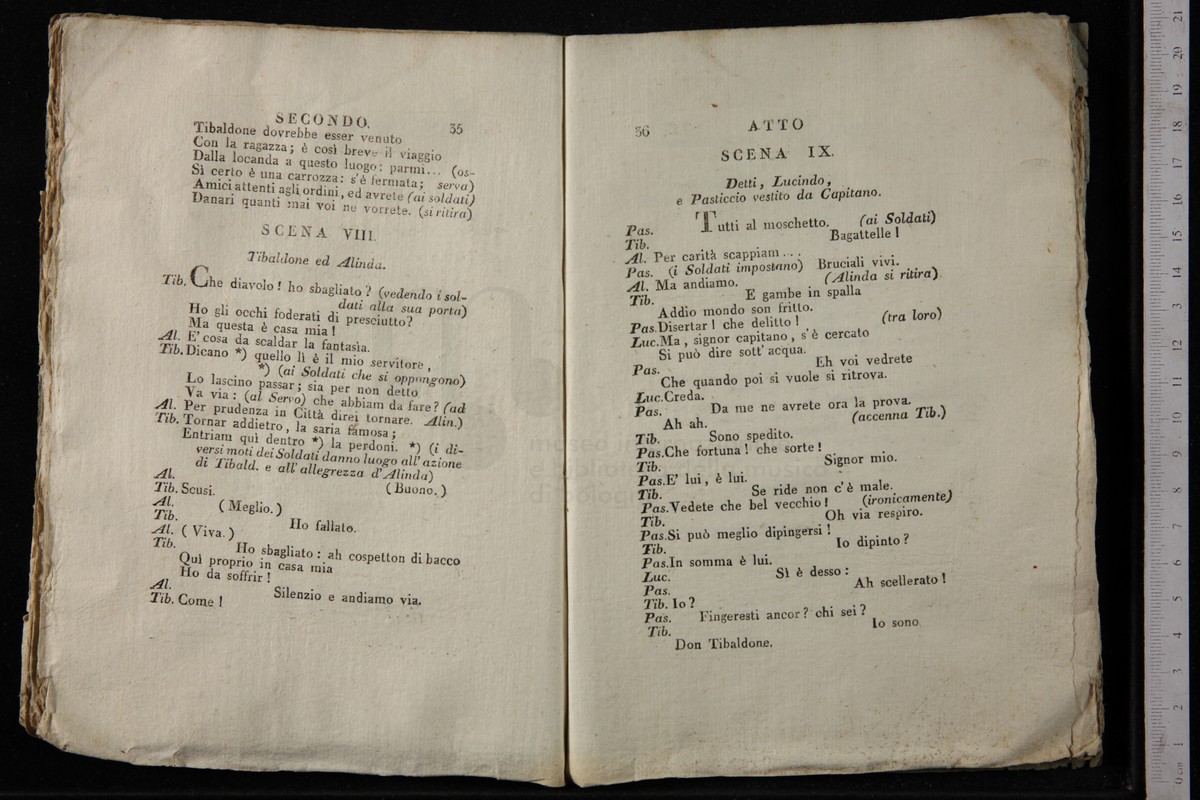 SECONDO. 35
Tibaldone dovrebbe esser venuto
Con la ragazza; è così breve il viaggio
Dalla locanda a questo luogo: parmi... (os-
Sì certo è una carrozza: s'è fermata; serva)
Amici attenti agli ordini, ed avrete (ai soldati)
Danari quanti mai voi ne vorrete. (si ritira)
SCENA VIII.
Tibaldone ed Alinda.
Tib. Che diavolo! ho sbagliato? (vedendo i sol-
dati alla sua porta)
Ho gli occhi foderati di presciutto?
Ma questa è casa mia!
Al. E' cosa da scaldar la fantasìa.
Tib. Dicano *) quello lì è il mio servitore,
*) (ai Soldati che si oppongono)
Lo lascino passar; sia per non detto
Va via: (al Servo) che abbiam da fare? (ad
Al. Per prudenza in Città direi tornare. Alin.)
Tib. Tornar addietro, la saria famosa;
Entriam quì dentro *) la perdoni. *) (i di-
versi moti dei Soldati danno luogo all'azione
di Tibald. e all'allegrezza d'Alinda)
Al. (Buono.)
Tib. Scusi.
Al. (Meglio.)
Tib. Ho fallato.
Al. (Viva.)
Tib. Ho sbagliato: ah cospetton di bacco
Quì proprio in casa mia
Ho da soffrir!
Al. Silenzio e andiamo via.
Tib. Come!
36 ATTO
SCENA IX.
Detti, Lucindo,
e Pasticcio vestito da Capitano.
Pas. Tutti al moschetto. (ai Soldati)
Tib. Bagattelle!
Al. Per carità scappiam...
Pas. (i Soldati impostano) Bruciali vivi.
Al. Ma andiamo. (Alinda si ritira)
Tib. E gambe in spalla
Addio mondo son fritto.
Pas. Disertar! che delitto! (tra loro)
Luc. Ma, signor capitano, s'è cercato
Si può dire sott' acqua.
Pas. Eh voi vedrete
Che quando poi si vuole si ritrova.
Luc. Creda.
Pas. Da me ne avrete ora la prova.
Ah ah. (accenna Tib.)
Tib. Sono spedito.
Pas. Che fortuna! che sorte!
Tib. Signor mio.
Pas. E' lui, è lui.
Tib. Se ride non c'è male.
Pas. Vedete che bel vecchio! (ironicamente)
Tib. Oh via respiro.
Pas. Si può meglio dipingersi!
Tib. Io dipinto?
Pas. In somma è lui.
Luc. Sì è desso:
Pas. Ah scellerato!
Tib. Io?
Pas. Fingeresti ancor? chi sei?
Tib. Io sono
Don Tibaldone.